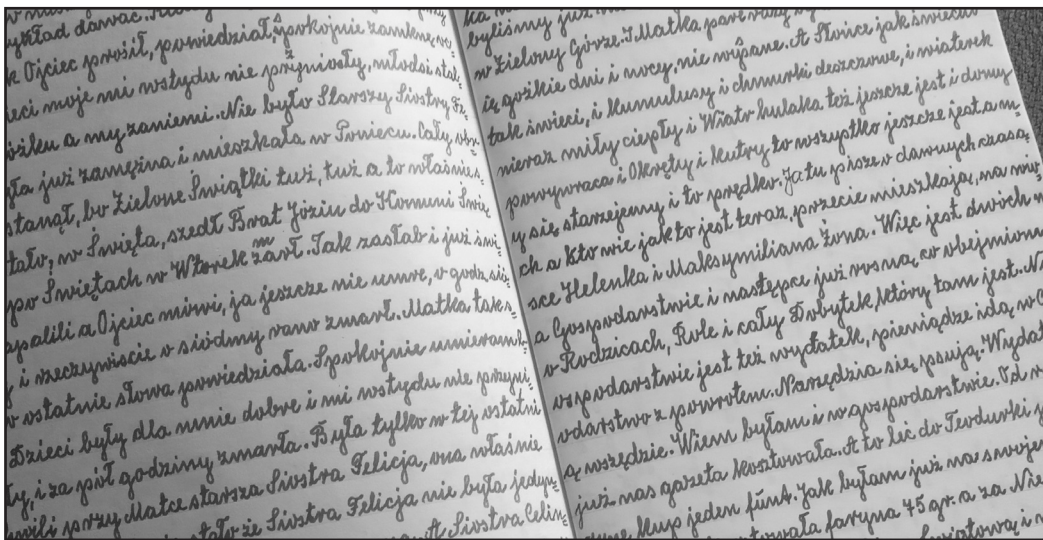 kład dawać.
k Ojciec prosił, powiedział, spokojnie zamknę
eci moje mi wstydu nie przyniosły, młodsi stal
óżku a my zaniemi. Nie było Starszy Siostry, Fe
yła już zamężna i mieszkała w Poniecu. Cały
stanął, bo Zielone Świątki tuż, tuż a to właśnie
tało, w Święta, szedł Brat Józiu do Komuni Świę
po Świętach w Wtorek zmarł. Tak zasłab i już świ
apalili a Ojciec mówi, ja jeszcze nie umre, o godz. sió
y i rzeczywiscie o siódmy rano zmarł. Matka tak s
w ostatnie słowa powiedziała. Spokojnie umieram b
Dzieci były dla mnie dobre i mi wstydu nie przyni
ły, i za pół godziny zmarła. Była tylko w tej ostatni
wili przy Matce starsza Siostra Felicja, ona właśnie
stało że Siostra Felicja nie była jedyn
A Siostra Celin
byliśmy już
w Zielony Górze. I Matka
ię gożkie dni i nocy, nie wyspane. A Słońce jak świeciło
tak świeci, i kumulusy i chmurki deszczowe, i wiaterek
nieraz miły ciepły i Wiatr hulaka też jeszcze jest i domy
powywraca i Okręty i kutry to wszystko jeszcze jest a m
y się starzejemy i to prędko. Ja tu pisze o dawnych czasa
ch a kto wie jak to jest teraz, przecie mieszkają, na miy
sce Helenka i Maksymiliana żona. Więc jest dwóch n
a Gospodarstwie i następce już rosną, co obejmion
o Rodzicach, Role i cały Dobytek, który tam jest. N
ospodarstwie jest też wydatek, pieniądze idą, w
odarstwo z powrotem. Narzędzia się psują. Wydat
ą wszędzie. Wiem byłam i w gospodarstwie. Od
już nas gazeta kosztowała. A to lić do Teodunki
klup jeden fúnt. Jak byłam już na swojem
faryna 75 gr. a za Nie
Światową i